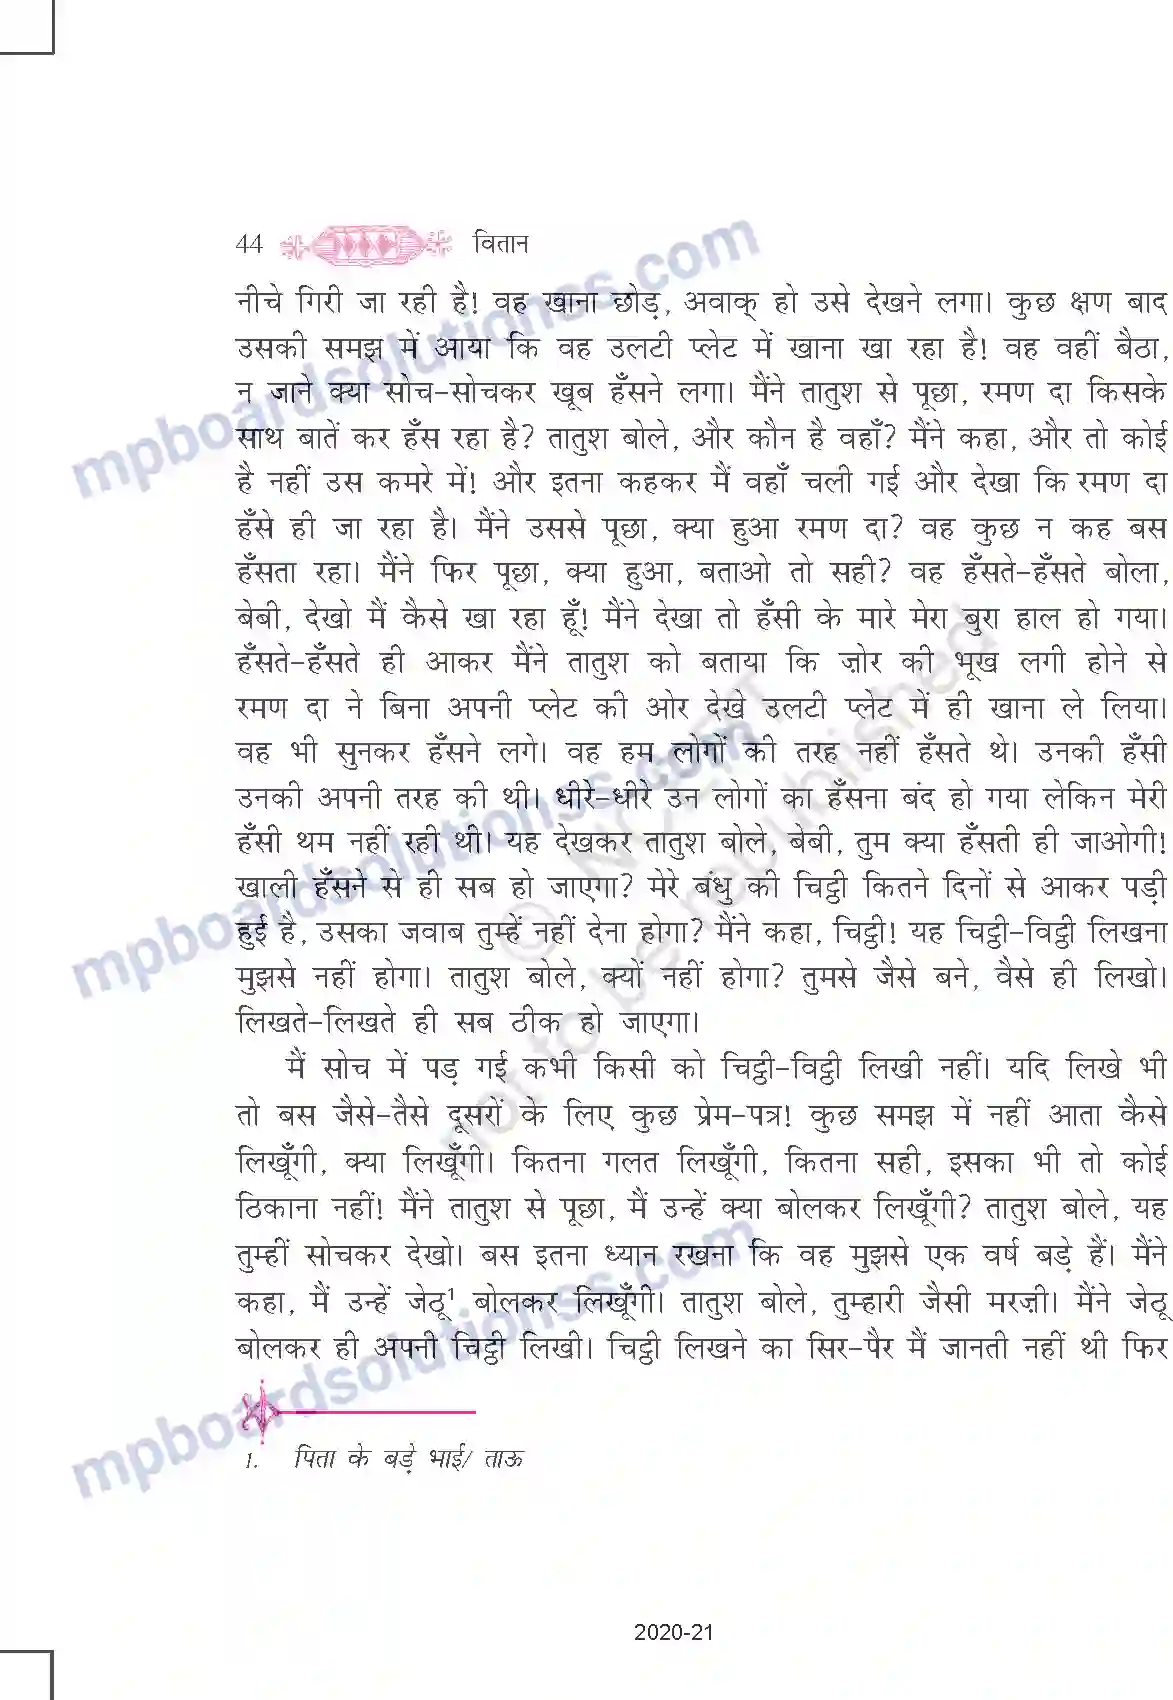 44 वितान
नीचे गिरी जा रही है! वह खाना छोड़, अवाक् हो उसे देखने लगा। कुछ क्षण बाद
उसकी समझ में आया कि वह उलटी प्लेट में खाना खा रहा है! वह वहीं बैठा,
न जाने क्या सोच-सोचकर खूब हँसने लगा। मैंने तातुश से पूछा, रमण दा किसके
साथ बातें कर हँस रहा है? तातुश बोले, और कौन है वहाँ? मैंने कहा, और तो कोई
है नहीं उस कमरे में! और इतना कहकर मैं वहाँ चली गई और देखा कि रमण दा
हँसे ही जा रहा है। मैंने उससे पूछा, क्या हुआ रमण दा? वह कुछ न कह बस
हँसता रहा। मैंने फिर पूछा, क्या हुआ, बताओ तो सही? वह हँसते-हँसते बोला,
बेबी, देखो मैं कैसे खा रहा हूँ! मैंने देखा तो हँसी के मारे मेरा बुरा हाल हो गया।
हँसते-हँसते ही आकर मैंने तातुश को बताया कि ज़ोर की भूख लगी होने से
रमण दा ने बिना अपनी प्लेट की ओर देखे उलटी प्लेट में ही खाना ले लिया।
वह भी सुनकर हँसने लगे। वह हम लोगों की तरह नहीं हँसते थे। उनकी हँसी
उनकी अपनी तरह की थी। धीरे-धीरे उन लोगों का हँसना बंद हो गया लेकिन मेरी
हँसी थम नहीं रही थी। यह देखकर तातुश बोले, बेबी, तुम क्या हँसती ही जाओगी!
खाली हँसने से ही सब हो जाएगा? मेरे बंधु की चिट्ठी कितने दिनों से आकर पड़ी
हुई है, उसका जवाब तुम्हें नहीं देना होगा? मैंने कहा, चिट्ठी! यह चिट्ठी-विट्ठी लिखना
मुझसे नहीं होगा। तातुश बोले, क्यों नहीं होगा? तुमसे जैसे बने, वैसे ही लिखो।
लिखते-लिखते ही सब ठीक हो जाएगा।
मैं सोच में पड़ गई कभी किसी को चिट्ठी-विट्ठी लिखी नहीं। यदि लिखे भी
तो बस जैसे-तैसे दूसरों के लिए कुछ प्रेम-पत्र! कुछ समझ में नहीं आता कैसे
लिखूँगी, क्या लिखूँगी। कितना गलत लिखूँगी, कितना सही, इसका भी तो कोई
ठिकाना नहीं! मैंने तातुश से पूछा, मैं उन्हें क्या बोलकर लिखूँगी? तातुश बोले, यह
तुम्हीं सोचकर देखो। बस इतना ध्यान रखना कि वह मुझसे एक वर्ष बड़े हैं। मैंने
कहा, मैं उन्हें जेठू¹ बोलकर लिखूँगी। तातुश बोले, तुम्हारी जैसी मरज़ी। मैंने जेठू
बोलकर ही अपनी चिट्ठी लिखी। चिट्ठी लिखने का सिर-पैर मैं जानती नहीं थी फिर
1. पिता के बड़े भाई/ ताऊ
2020-21
mpboardsolutionss.com
mpboardsolutionss.com
mpboardsolutionss.com
© NCERT
not to be republished